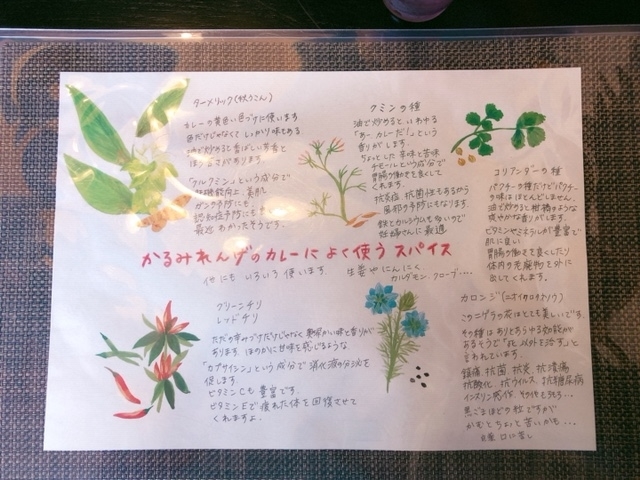 ターメリック(秋うこん)
カレーの黄色い色づけに使います
色だけじゃなくて しっかり味もある
油で炒めると香ばしい芳香と
ほろ苦さがあります。
「クルクミン」という成分で
肝機能向上、美肌
ガン予防にも
認知症予防にも
最近 わかったそうです。
クミンの種
油で炒めると、いわゆる
「あーカレーだ!」という
香りがします。
ちょっとした辛味と苦味
チモールという成分で
胃腸の働きを良くして
くれます。
抗炎症、抗菌性もあるから
風邪の予防にもなります。
鉄とカルシウムも多いので
妊婦さんに最適
コリアンダーの種
パクチーの種だけどパクチー
の味はほとんどしません。
油で炒めると柑橘のような
爽やかな香りがします。
ビタミンやミネラルが豊富で
肌に良い
胃腸の働きを良くしたり
体内の老廃物を外に
出してくれます。
かるみれんげのカレーによく使うスパイス
他にも いろいろ使います。 生姜やにんにく
カルダモン、クローブ・・・・
グリーンチリ
レッドチリ
ただの辛みづけだけじゃなく 奥深い味と香りが
あります。ほのかに甘味を感じるような
「カプサイシン」という成分で 消化液の分泌を
促します。
ビタミンCも豊富です。
ビタミンEで疲れた体を回復させて
くれますよ。
カロンジ(ニオイクロタネソウ)
このニゲラの花はとても美しいです。
その種はありとあらゆる効能が
あるそうで「死以外を治す」と
言われています。
鎮痛 抗菌 抗炎 抗潰瘍
抗酸化 抗ウィルス、抗糖尿病
黒ごまほどの粒ですが
かむとちょっと苦いかも・・・
良薬 口に苦し